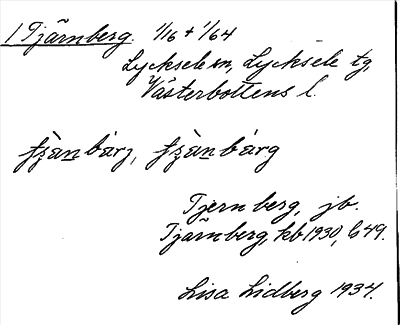 1 Tjärnberg. 1/16 + 1/64
Lycksele sn, Lycksele tg,
Västerbottens l.
Tjern berg, jb.
Tjärnberg, kb 1930, b 49.
Lisa Lidberg 1934.